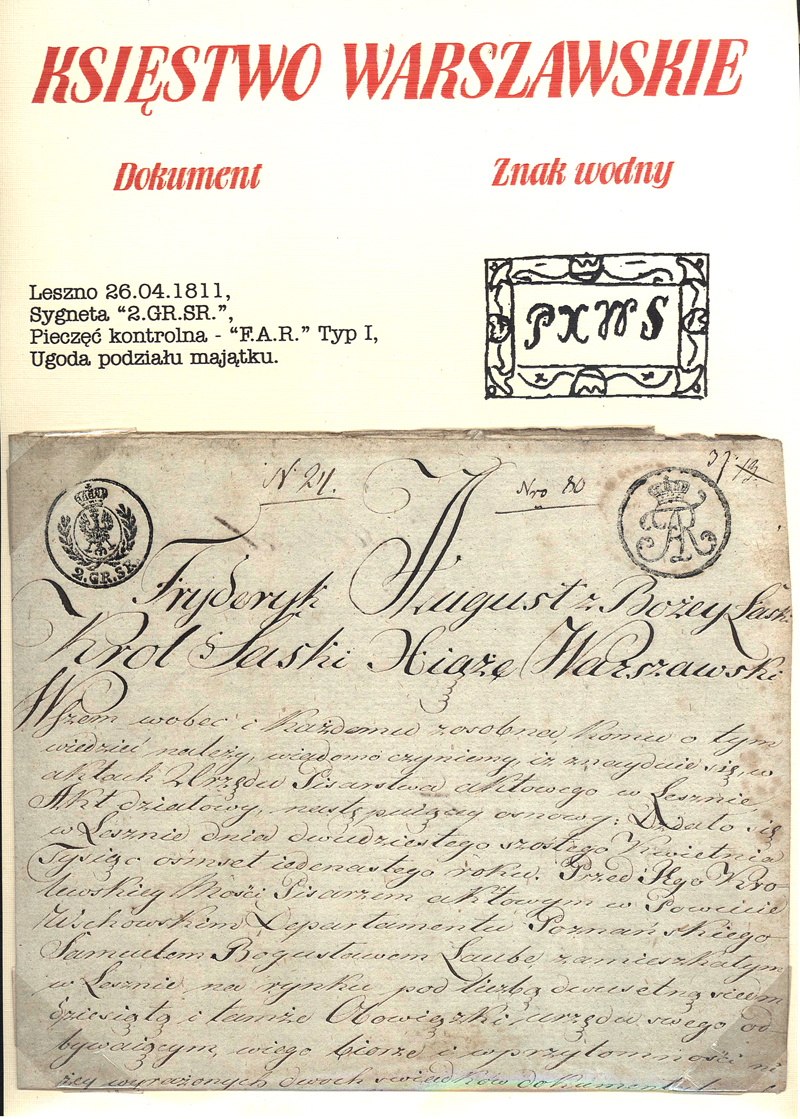 KSIĘSTWO WARSZAWSKIE
Dokument
Znak wodny
Leszno 26.04.1811,
Sygneta “2.GR.SR.”,
Pieczęć kontrolna - “F.A.R.” Typ I,
Ugoda podziału majątku.
PXWS
N. 24.
Nro 80
37
13
2.GR.SR.
FAR
Fryderyk August z Bożey Łaski
Krol Saski Xiążę Warszawski
Wszem wobec i każdemu zosobna komu o tym
wiedzieć należy, wiadomo czyniemy, iż znayduie się, w
aktach Urzędu Pisarstwa aktowego w Lesznie,
Akt działowy, następuiący osnowy: Działo się
w Lesznie dnia dwudziestego szostego Kwietnia
Tysiąc ośmset iedenastego roku. Przed Jego Kro-
lewskiey Mości Pisarzem aktowym w Powiecie
Wschowskim Departamentu Poznańskiego
Samuelem Bogusławem Laube, zamieszkałym
w Lesznie na rynku pod liczbą dwusetną siedm
dziesiątą i tamże Obowiązki urzędu swego od-
bywaiącym, wiego biorze i w przytomności ni
żey wyrażonych dwoch swiadków